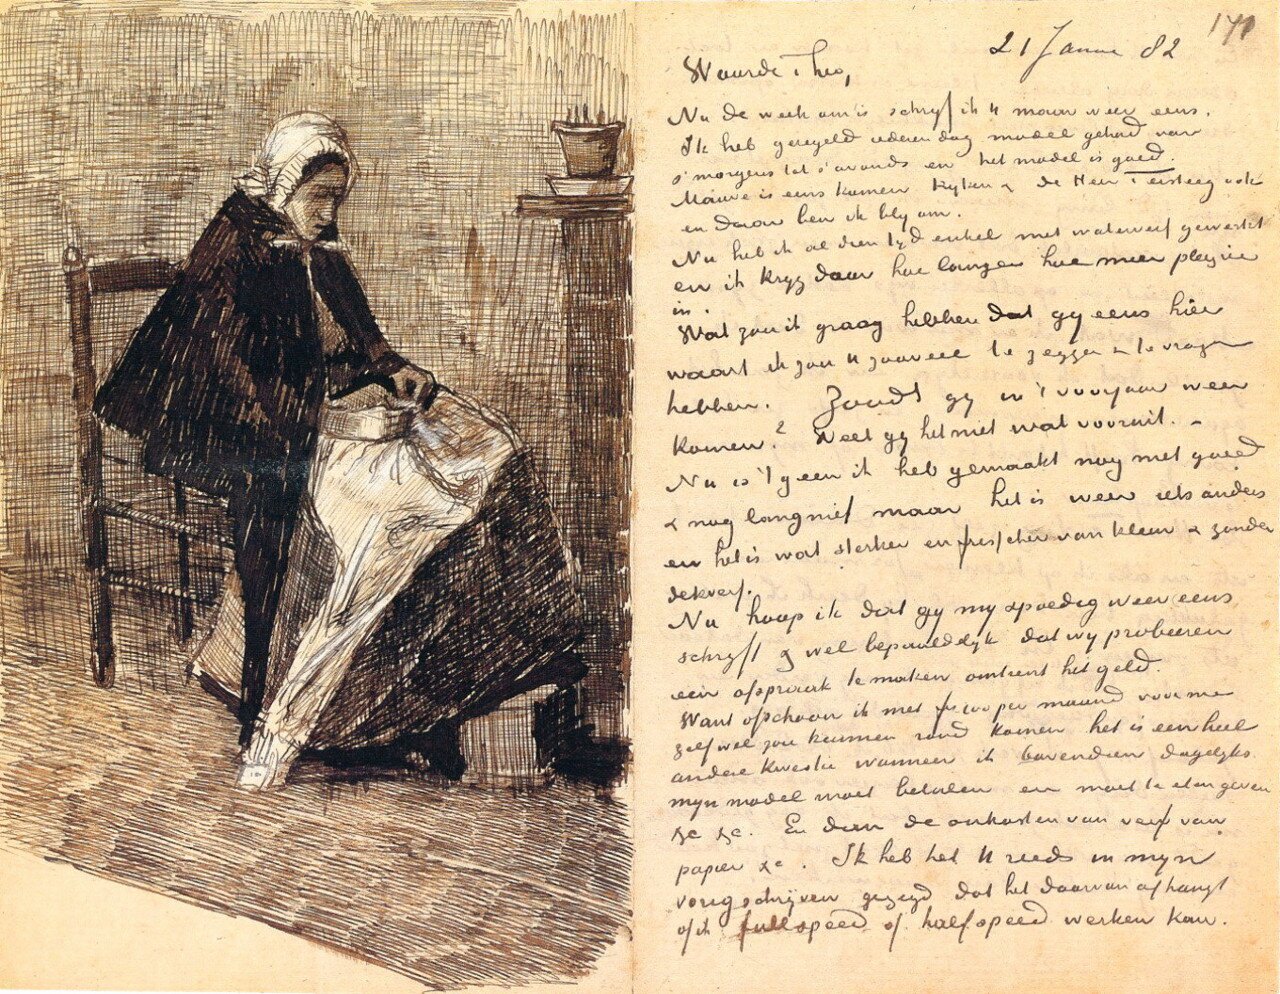 171
21 Januari 82
Waarde Theo,
Nu de week om is schryf ik U maar weer eens.
Ik heb geregeld iederen dag model gehad van
s'morgens tot s'avonds en het model is goed.
Mauve is eens komen kyken & de Heer Tersteeg ook
en daar ben ik bly om.
Nu heb ik al dien tyd enkel met waterverf gewerkt
en ik kryg daar hoe langer hoe meer plezier
in.
Wat zou ik graag hebben dat gy eens hier
waart ik zou U zooveel te zeggen & te vragen
hebben. Zoudt gy in 't voorjaar weer
komen? Weet gy het niet wat vooruit. –
Nu is 't geen ik heb gemaakt nog niet goed
& nog lang niet maar het is weer iets anders
en het is wat sterker en frisscher van kleur & zonder
dekverf.
Nu hoop ik dat gy my spoedig weer eens
schryft & wel bepaaldelyk dat wy probeeren
een afspraak te maken omtrent het geld.
Want ofschoon ik met fr 100 per maand voor me
zelf wel zou kunnen rond komen het is een heel
andere kwestie wanneer ik bovendien dagelyks
myn model moet betalen en moet te eten geven
&c &c. En dien de onkosten van verf van
papier &c. Ik heb het U reeds in myn
vorig schrijven gezegd dat het daarvan afhangt
of ik full speed of half speed werken kan.